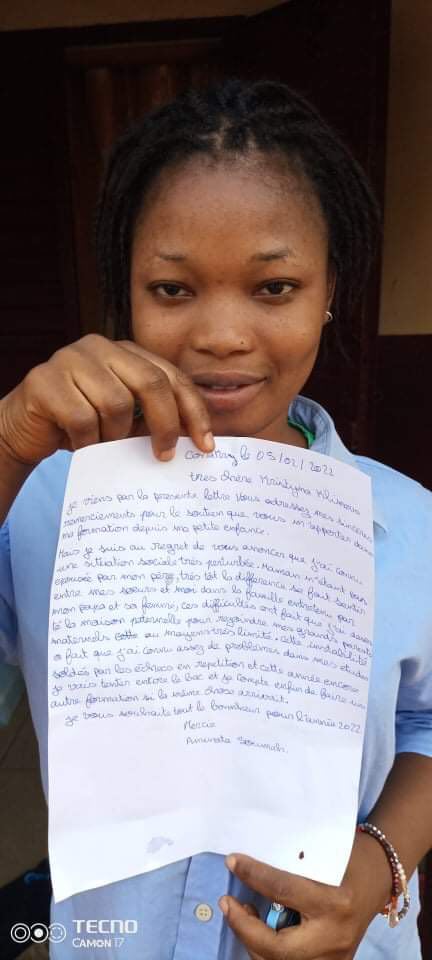 Conakry le 05/02/2022
très chère Kristyna Klimova
Je viens par la présente lettre vous adressez mes sincères
remerciements pour le soutien que vous m'apporter dans
ma formation depuis ma petite enfance.
Mais je suis au regret de vous annoncer que j'ai connu
une situation sociale très perturbée. Maman n'étant pas
épousée par mon père, très tôt la difference se fait sentir
entre mes soeurs et moi dans la famille entretenu par
mon papa et sa femme, ces difficultés ont fait que j'ai aban
té la maison paternelle pour rejoindre mes grands parents
maternels cette au moyens très limité. Cette instabilité
a fait que j'ai connu assez de problèmes dans mes études
soldés par les échecs en repetition et cette année encore
je vais tenter encore le bac et je compte enfin de faire une
autre formation si la même chose arrivait.
je vous souhaite tout le bonheur pour l'année 2022
Mercie
Aminata Soumah.
TECNO
CAMON 17